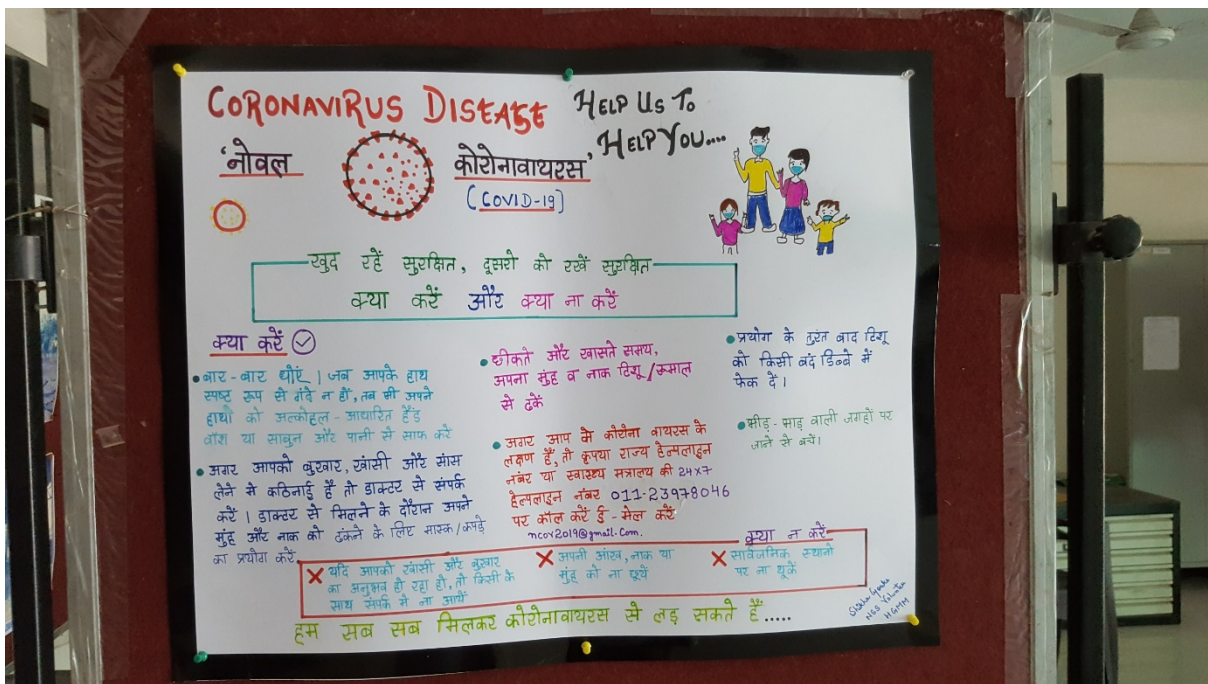 CORONAVIRUS DISEASE
HELP US TO
HELP YOU....
'नोवल कोरोनावायरस'
(COVID-19)
खुद रहें सुरक्षित, दूसरो को रखें सुरक्षित
क्या करें और क्या ना करें
क्या करें
बार-बार धोएं। जब आपके हाथ
स्पष्ट रूप से गंदे न हों, तब भी अपने
हाथों को अल्कोहल - आधारित हैंड
वॉश या साबुन और पानी से साफ करें
अगर आपको बुखार, खांसी और सांस
लेने में कठिनाई हैं तो डाक्टर से संपर्क
करें। डाक्टर से मिलने के दौरान अपने
मुंह और नाक को ढंकने के लिए मास्क/कपड़े
का प्रयोग करें
छीकते और खासते समय,
अपना मुंह व नाक टिशू/रूमाल
से ढकें
अगर आप मे कोरोना वायरस के
लक्षण हैं, तो कृपया राज्य हेल्पलाइन
नंबर या स्वास्थ्य मंत्रालय की 24x7
हेल्पलाइन नंबर 011-23978046
पर कॉल करें ई-मेल करें
ncov2019@gmail.com.
प्रयोग के तुरंत बाद टिशू
को किसी बंद डिब्बे में
फेक दें।
भीड़-भाड़ वाली जगहों पर
जाने से बचें।
क्या न करें
यदि आपको खांसी और बुखार
का अनुभव हो रहा हो, तो किसी के
साथ संपर्क मे ना आयें
अपनी आंख, नाक या
मुंह को ना छूयें
सार्वजनिक स्थानो
पर ना थूकें
हम सब सब मिलकर कोरोनावायरस से लड़ सकते हैं.....
NSS Volunteer
HGMM